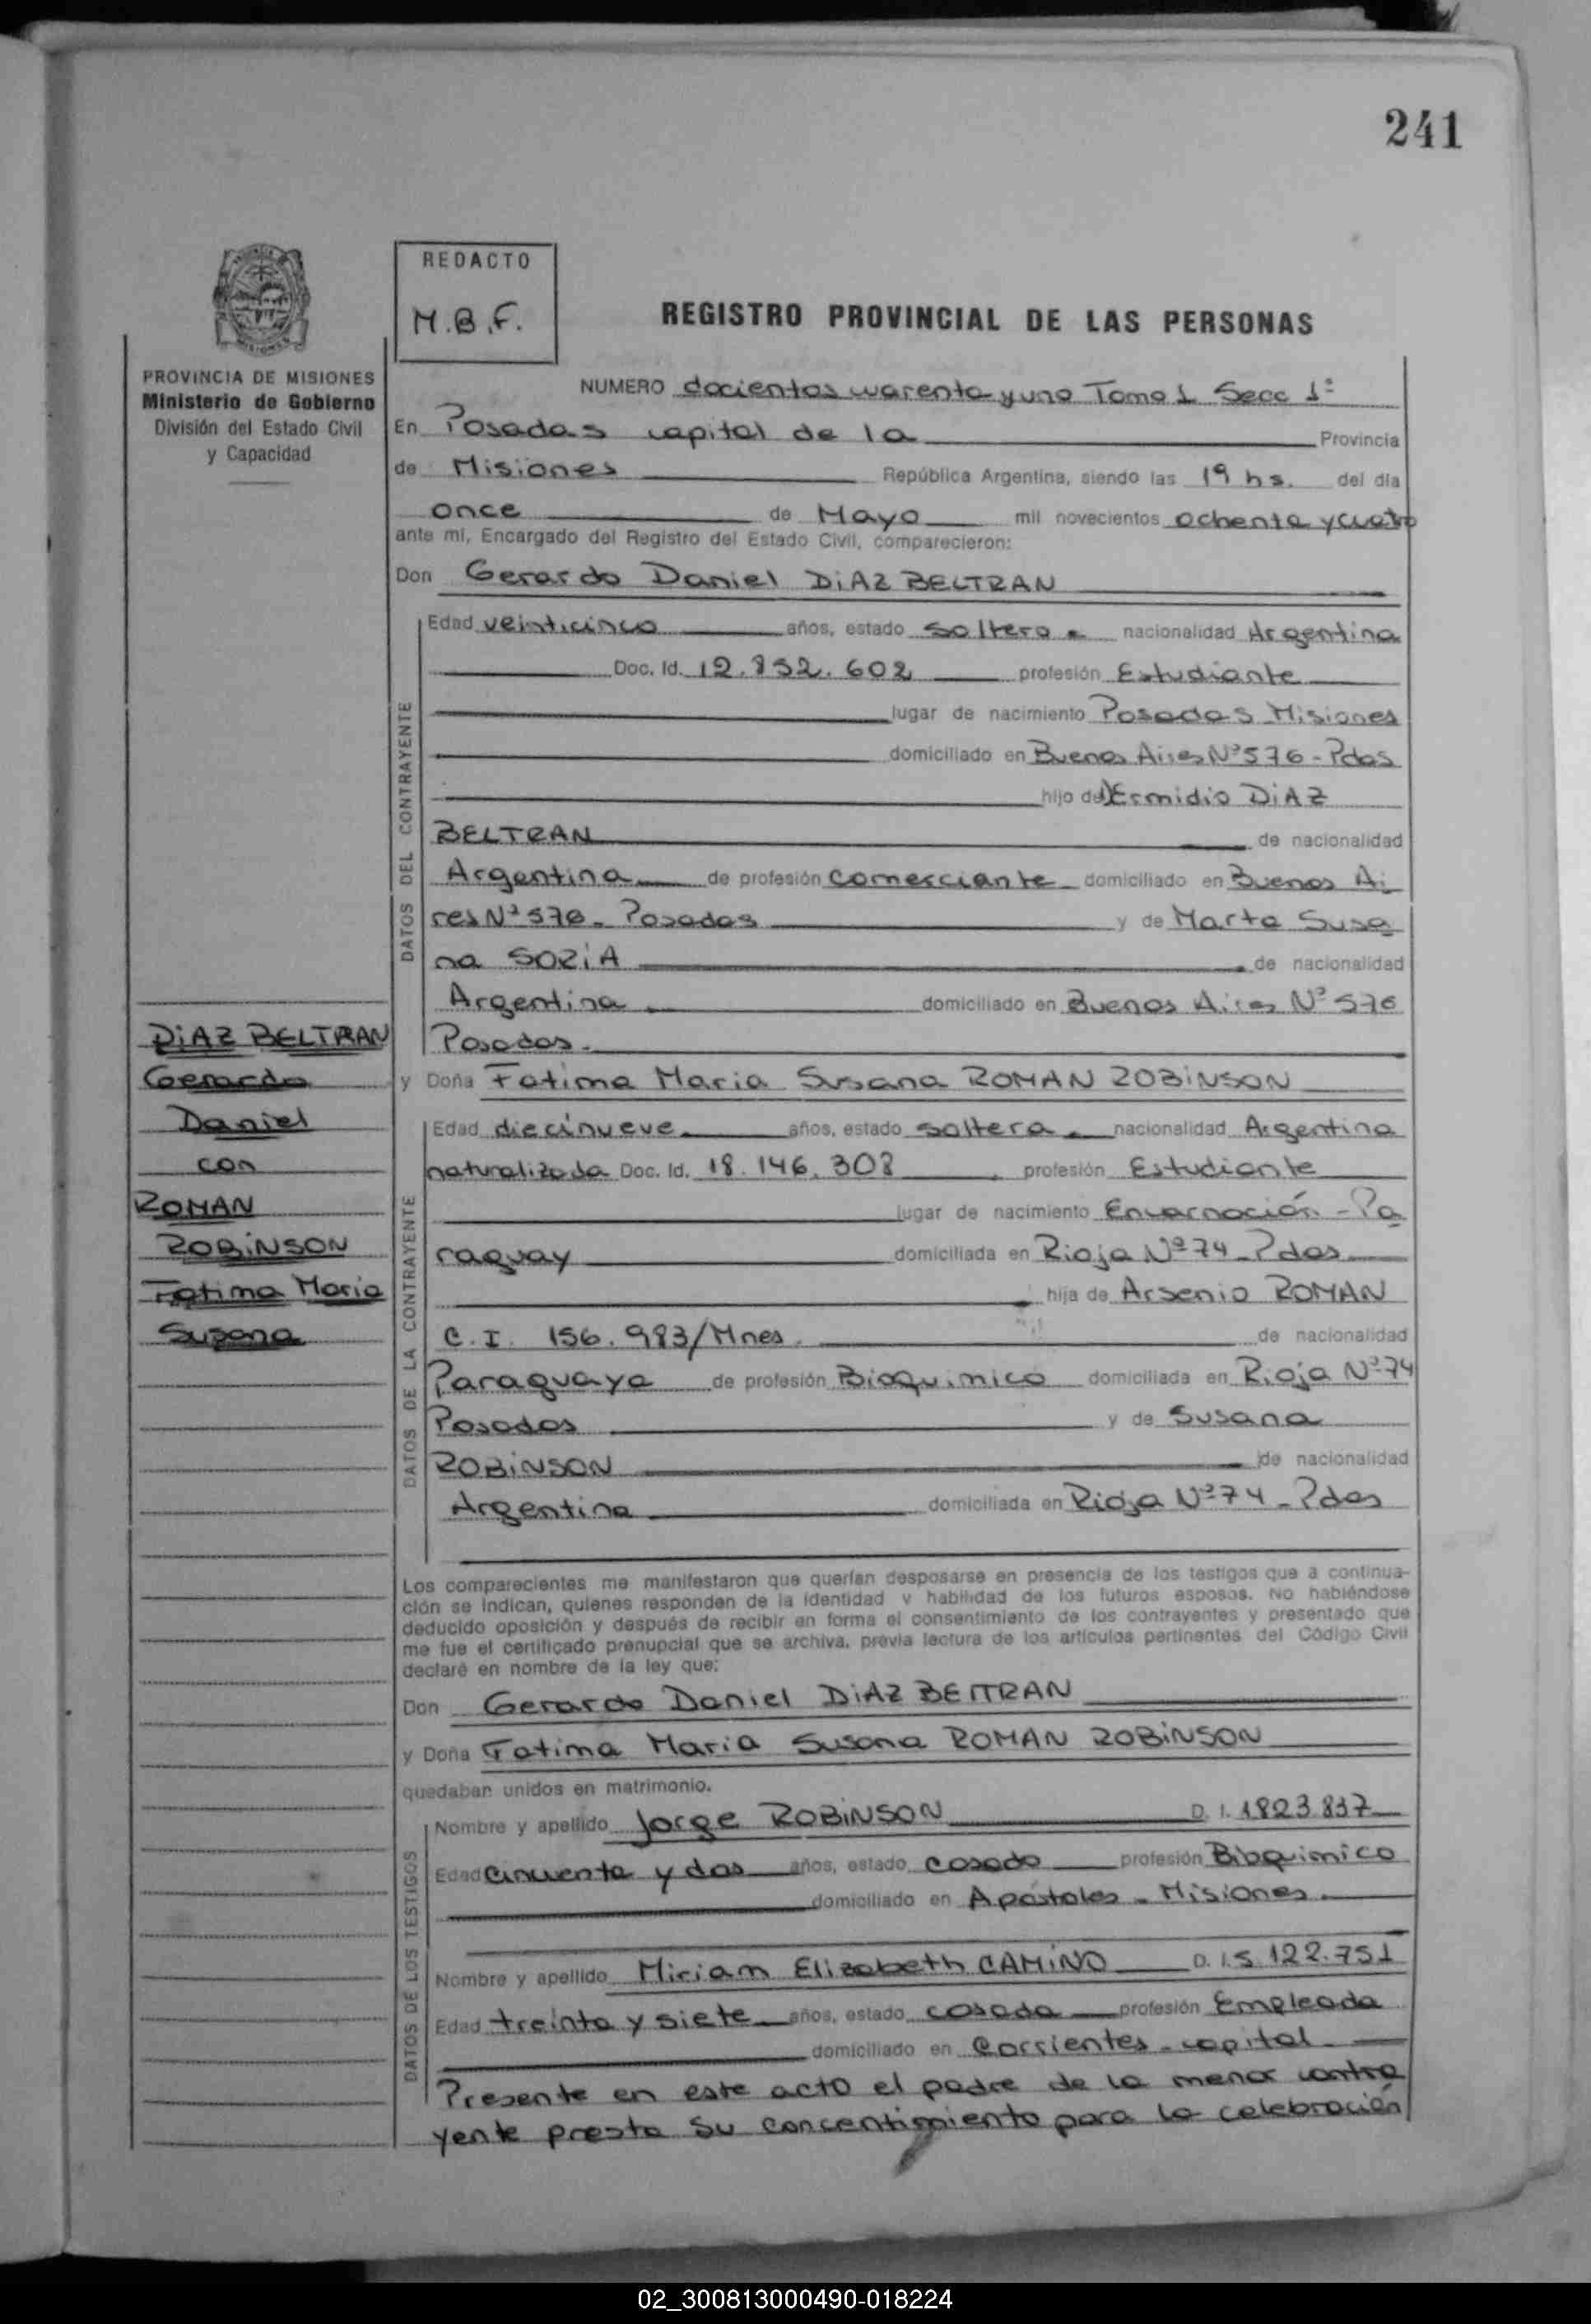 241
REDACTO
M.B.F.
REGISTRO PROVINCIAL DE LAS PERSONAS
PROVINCIA DE MISIONES
Ministerio de Gobierno
División del Estado Civil
y Capacidad
NUMERO docientos cuarenta y uno Tomo 1 Secc 1ª
En Posadas capital de la Provincia
de Misiones República Argentina, siendo las 19 hs. del día
once de Mayo mil novecientos ochenta y cuatro
ante mí, Encargado del Registro del Estado Civil, comparecieron:
Don Gerardo Daniel DiAZ BELTRAN
DATOS DEL CONTRAYENTE
Edad veinticinco años, estado soltero nacionalidad Argentina
Doc. Id. 12.852.602 profesión Estudiante
lugar de nacimiento Posadas Misiones
domiciliado en Buenos Aires Nº 576 - Pdas
hijo de Ermidio DiAZ
BELTRAN de nacionalidad
Argentina de profesión comerciante domiciliado en Buenos Ai
res Nº 576 - Posadas y de Marta Susa
na SORiA de nacionalidad
Argentina domiciliado en Buenos Aires Nº 576
Posadas.
DiAZ BELTRAN
Gerardo
Daniel
con
ROMAN
ROBiNSON
Fatima Maria
Susana
y Doña Fatima Maria Susana ROMAN ROBiNSON
DATOS DE LA CONTRAYENTE
Edad diecinueve años, estado soltera nacionalidad Argentina
naturalizada Doc. Id. 18.146.308 profesión Estudiante
lugar de nacimiento Encarnación - Pa
raguay domiciliada en Rioja Nº 74 - Pdas
hija de Arsenio ROMAN
C.I. 156.983/Mnes. de nacionalidad
Paraguaya de profesión Bioquimico domiciliada en Rioja Nº 74
Posadas y de Susana
ROBiNSON de nacionalidad
Argentina domiciliada en Rioja Nº 74 - Pdas
Los comparecientes me manifestaron que querían desposarse en presencia de los testigos que a continua-
ción se indican, quienes responden de la identidad y habilidad de los futuros esposos. No habiéndose
deducido oposición y después de recibir en forma el consentimiento de los contrayentes y presentado que
me fue el certificado prenupcial que se archiva, previa lectura de los artículos pertinentes del Código Civil
declaré en nombre de la ley que:
Don Gerardo Daniel DiAZ BELTRAN
y Doña Fatima Maria Susana ROMAN ROBiNSON
quedaban unidos en matrimonio.
DATOS DE LOS TESTIGOS
Nombre y apellido Jorge ROBiNSON D. I. 1823.837
Edad cincuenta y dos años, estado casado profesión Bioquimico
domiciliado en Apóstoles - Misiones.
Nombre y apellido Miriam Elizabeth CAMiNO D. I. 5.122.751
Edad treinta y siete años, estado casada profesión Empleada
domiciliado en Corrientes - capital
Presente en este acto el padre de la menor contra
yente presta su concentimiento para la celebración
02_300813000490-018224